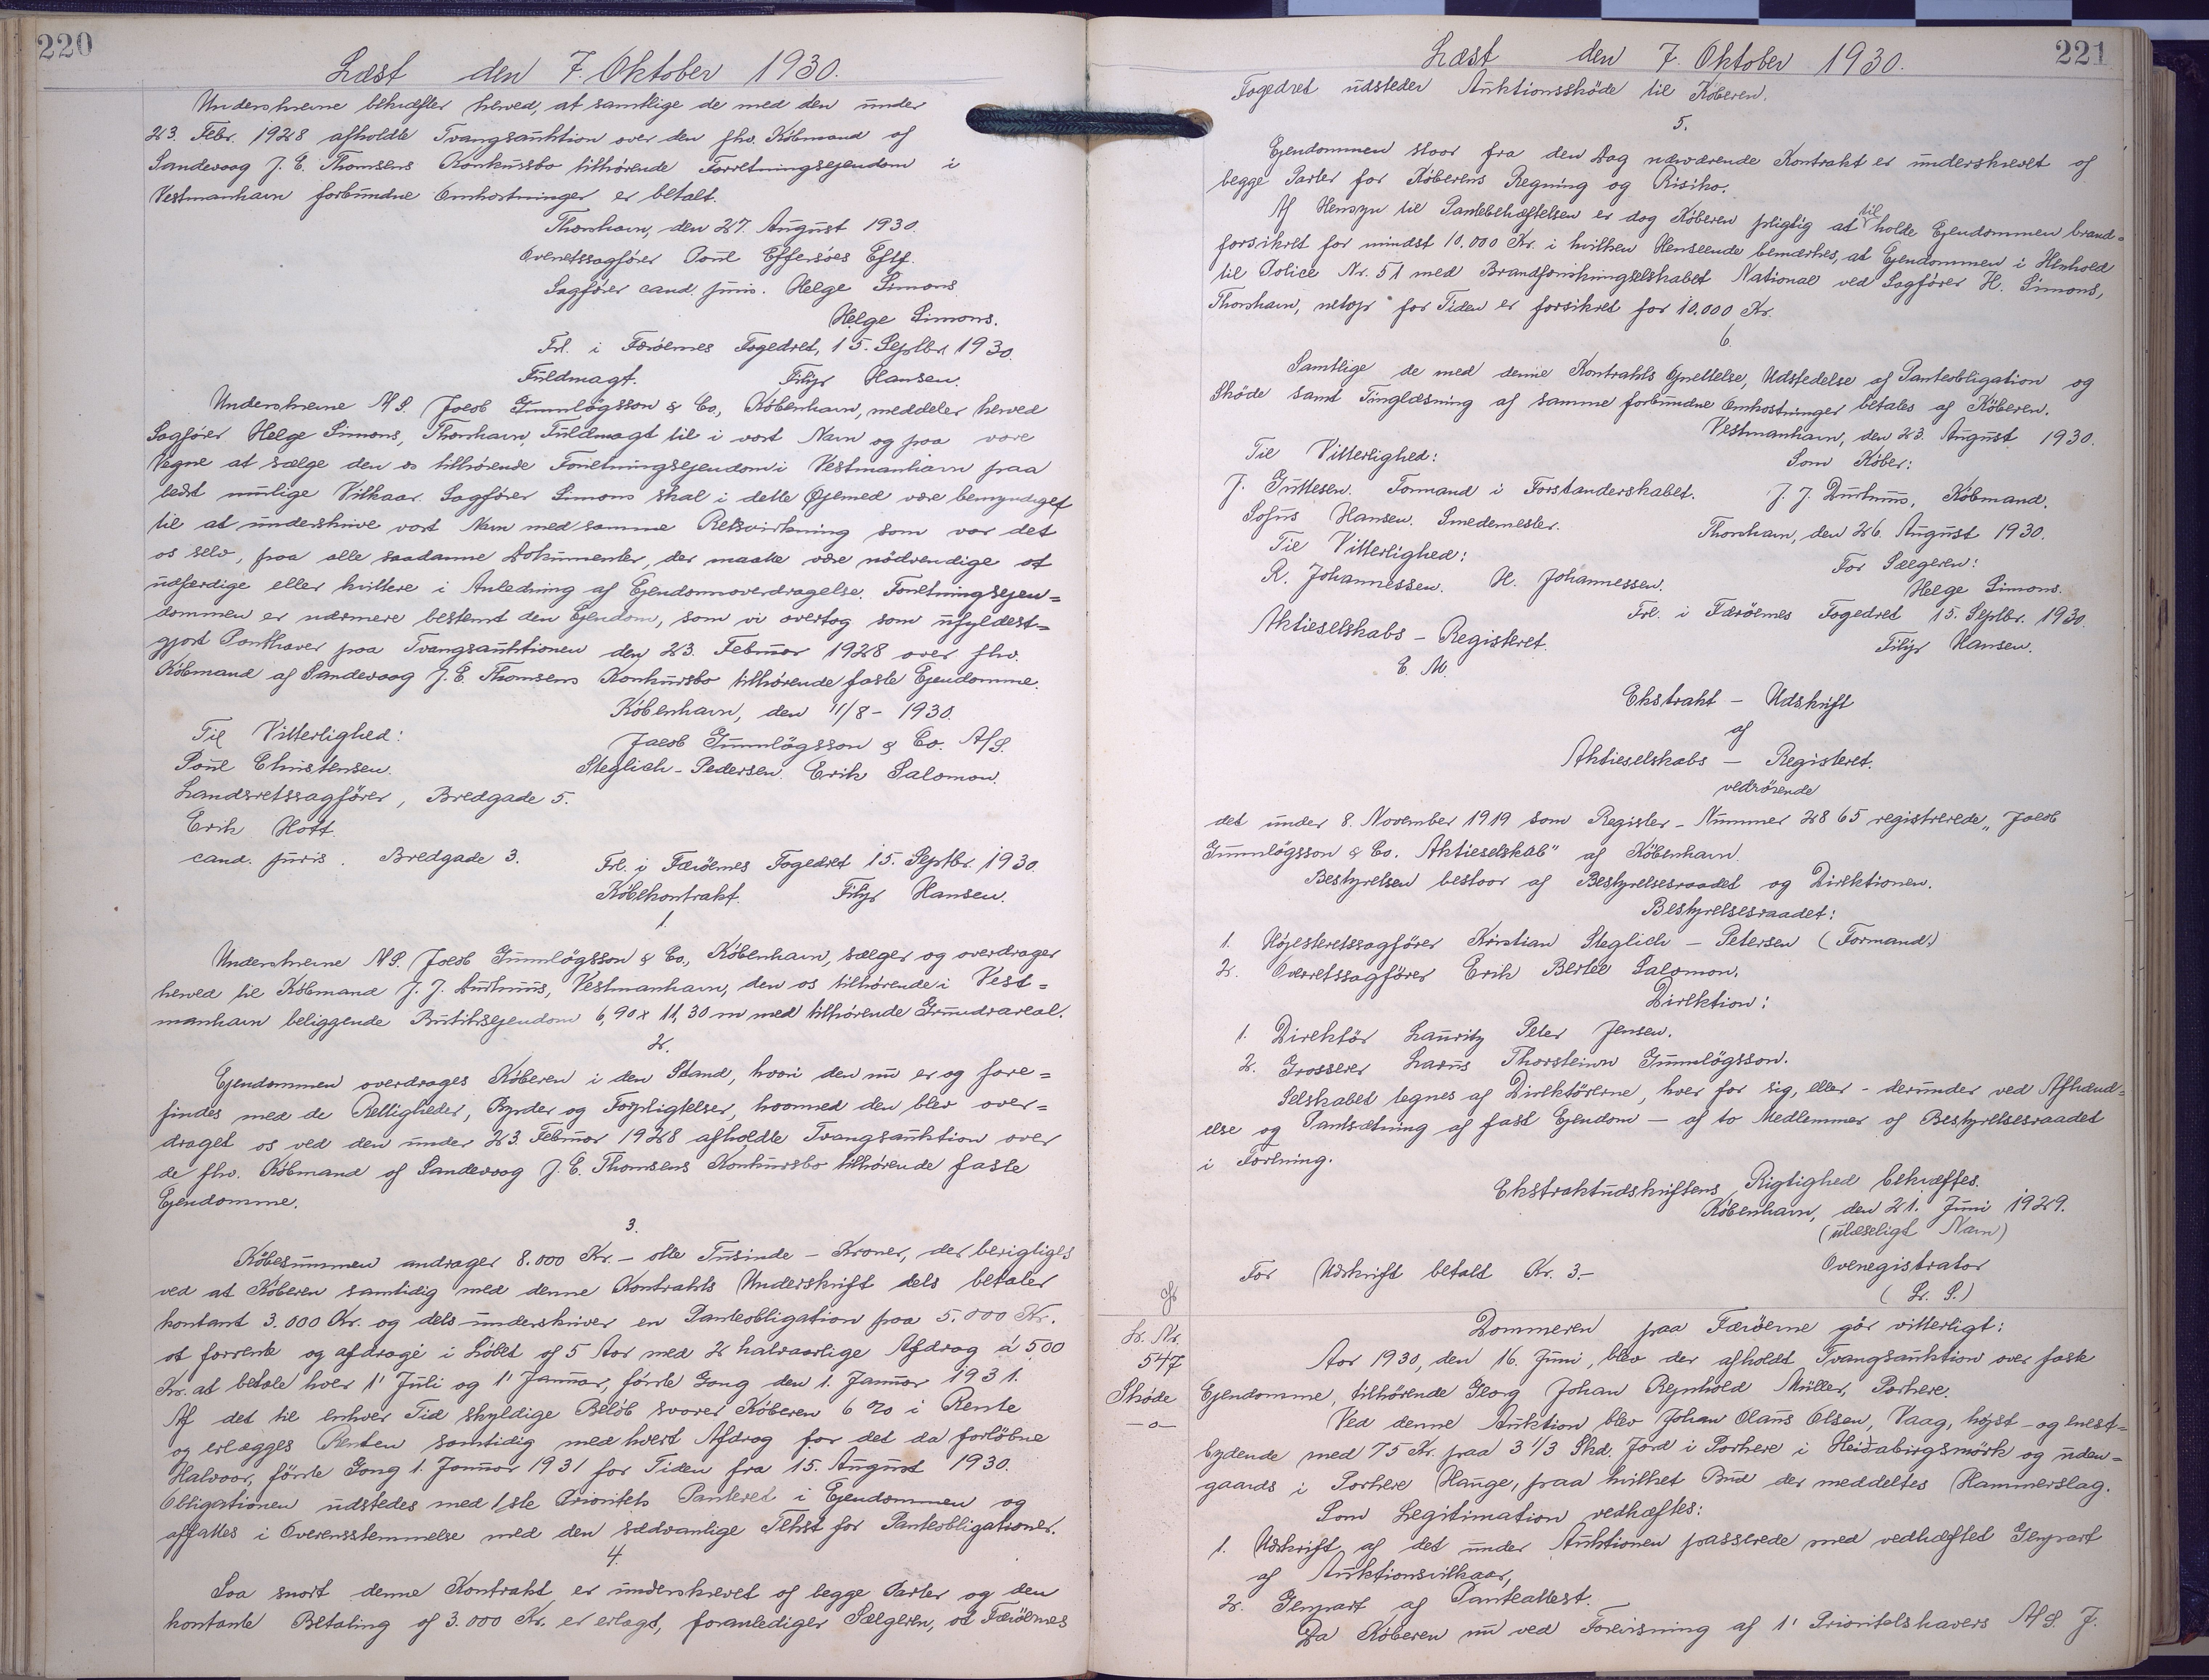 220
Læst den 7. Oktober 1930.
Underskrevne bekræfter herved, at samtlige de med den under
23. Febr. 1928 afholdte Tvangsauktion over den fhv. Købmand af
Sandevaag J. E. Thomsens Konkursbo tilhørende Forretningsejendom i
Vestmanhavn forbundne Omkostninger er betalt.
Thorshavn, den 27. August 1930.
Overretssagfører Poul Effersöes Eftf.
Sagfører cand. juris. Helge Simons
Helge Simons.
Frl. i Færöernes Fogedret, 15. Septbr. 1930.
Fuldmagt. Filip Hansen.
Underskrevne A/S. Jacob Gunnlögsson & Co, København, meddeler herved
Sagfører Helge Simons, Thorshavn, Fuldmagt til i vort Navn og paa vore
Vegne at sælge den os tilhørende Forretningsejendom i Vestmanhavn paa
bedst mulige Vilkaar. Sagfører Simons skal i dette Øjemed være bemyndiget
til at underskrive vort Navn med samme Retsvirkning som var det
os selv, paa alle saadanne Dokumenter, der maatte være nödvendige at
udfærdige eller kvittere i Anledning af Ejendomsoverdragelse. Forretningsejen=
dommen er nærmere bestemt den Ejendom, som vi overtog som ufyldest=
gjort Panthaver paa Tvangsauktionen den 23. Februar 1928 over fhv.
Købmand af Sandevaag J. E. Thomsens Konkursbo tilhørende faste Ejendomme.
København, den 11/8 - 1930.
Til Vitterlighed: Jacob Gunnlögsson & Co. A/S.
Poul Christensen. Steglich-Pedersen. Erik Salomon.
Landsretssagfører, Bredgade 5.
Erik Hoff.
cand. juris. Bredgade 3. Frl. i Færöernes Fogedret 15. Septbr. 1930.
Købekontrakt. Filip Hansen.
1.
Underskrevne A/S. Jacob Gunnlögsson & Co., København, sælger og overdrager
herved til Købmand J. J. Durhuus, Vestmanhavn, den os tilhørende i Vest=
manhavn beliggende Butiksejendom 6,90 x 11,30 m med tilhørende Grundareal.
2.
Ejendommen overdrages Køberen i den Stand, hvori den nu er og fore=
findes med de Rettigheder, Byrder og Forpligtelser, hvormed den blev over=
draget os ved den under 23. Februar 1928 afholdte Tvangsauktion over
de fhv. Købmand af Sandevaag J. E. Thomsens Konkursbo tilhørende faste
Ejendomme.
3.
Købesummen andrager 8.000 Kr. - otte Tusinde - Kroner, der berigtiges
ved at Køberen samtidig med denne Kontrakts Underskrift dels betaler
kontant 3.000 Kr. og dels underskriver en Panteobligation paa 5.000 Kr.
at forrente og afdrage i Løbet af 5 Aar med 2 halvaarlige Afdrag à 500
Kr. at betale hver 1' Juli og 1' Januar, förste Gang den 1. Januar 1931.
Af det til enhver Tid skyldige Beløb svarer Køberen 6 % i Rente
og erlægges Renten samtidig med hvert Afdrag for det da forløbne
Halvaar, förste Gang 1. Januar 1931 for Tiden fra 15. August 1930.
Obligationen udstedes med 1ste Prioritets Panteret i Ejendommen og
affattes i Overensstemmelse med den sædvanlige Tekst for Panteobligationer.
4.
Saa snart denne Kontrakt er underskrevet af begge Parter og den
kontante Betaling af 3.000 Kr. er erlagt, foranlediger Sælgeren, at Færöernes
221
Læst den 7. Oktober 1930.
Fogedret udsteder Auktionsskøde til Køberen.
5.
Ejendommen staar fra den Dag nærværende Kontrakt er underskrevet af
begge Parter for Køberens Regning og Risiko.
Af Hensyn til Pantebehæftelsen er dog Køberen pligtig at til holde Ejendommen brand=
forsikret for mindst 10.000 Kr. i hvilken Henseende bemærkes, at Ejendommen i Henhold
til Police Nr. 51 med Brandforsikringsselskabet National ved Sagfører H. Simons,
Thorshavn, netop for Tiden er forsikret for 10.000 Kr.
6.
Samtlige de med denne Kontrakts Oprettelse, Udstedelse af Panteobligation og
Skøde samt Tinglæsning af samme forbundne Omkostninger betales af Køberen.
Vestmanhavn, den 23. August 1930.
Til Vitterlighed: Som Køber:
J. Guttesen. Formand i Forstanderskabet. J. J. Durhuus, Købmand.
Sofus Hansen. Smedemester. Thorshavn, den 26. August 1930.
Til Vitterlighed: For Sælgeren:
R. Johannessen. H. Johannessen. Helge Simons.
Frl. i Færöernes Fogedret 15. Septbr. 1930.
Aktieselskabs - Registeret. Filip Hansen.
E. M.
Ekstrakt - Udskrift
af
Aktieselskabs - Registeret.
vedrörende
det under 8. November 1919 som Register - Nummer 2865 registrerede „Jacob
Gunnlögsson & Co. Aktieselskab" af København.
Bestyrelsen bestaar af Bestyrelsesraadet og Direktionen.
Bestyrelsesraadet:
1. Højesteretssagfører Kristian Steglich - Petersen (Formand.)
2. Overretssagfører Erik Bertel Salomon.
Direktion:
1. Direktör Lauritz Peter Jensen.
2. Grosserer Larus Thorsteinn Gunnlögsson.
Selskabet tegnes af Direktörerne, hver for sig, eller - derunder ved Afhænd=
else og Pantsætning af fast Ejendom - af to Medlemmer af Bestyrelsesraadet
i Forening.
Ekstraktudskriftens Rigtighed bekræftes.
København, den 21. Juni 1929.
(ulæseligt Navn)
For Udskrift betalt Kr. 3.- Overregistrator
(L. S.)
Lr. Nr.
547
Skøde
-o-
Dommeren paa Færöerne gör vitterligt:
Aar 1930, den 16. Juni, blev der afholdt Tvangsauktion over faste
Ejendomme, tilhörende Georg Johan Rejnhold Müller, Porkere.
Ved denne Auktion blev Johan Olaus Olsen, Vaag, højst- og enest=
bydende med 75 Kr. paa 3 1/3 Skd. Jord i Porkere i Heidabirgsmörk og uden=
gaards i Porkere Hauge, paa hvilket Bud der meddeltes Hammerslag.
Som Legitimation vedhæftes:
1. Udskrift af det under Auktionen passerede med vedhæftet Genpart
af Auktionsvilkaar,
2. Genpart af Panteattest.
Da Køberen nu ved Forevisning af 1' Prioritetshavers A/S. J.